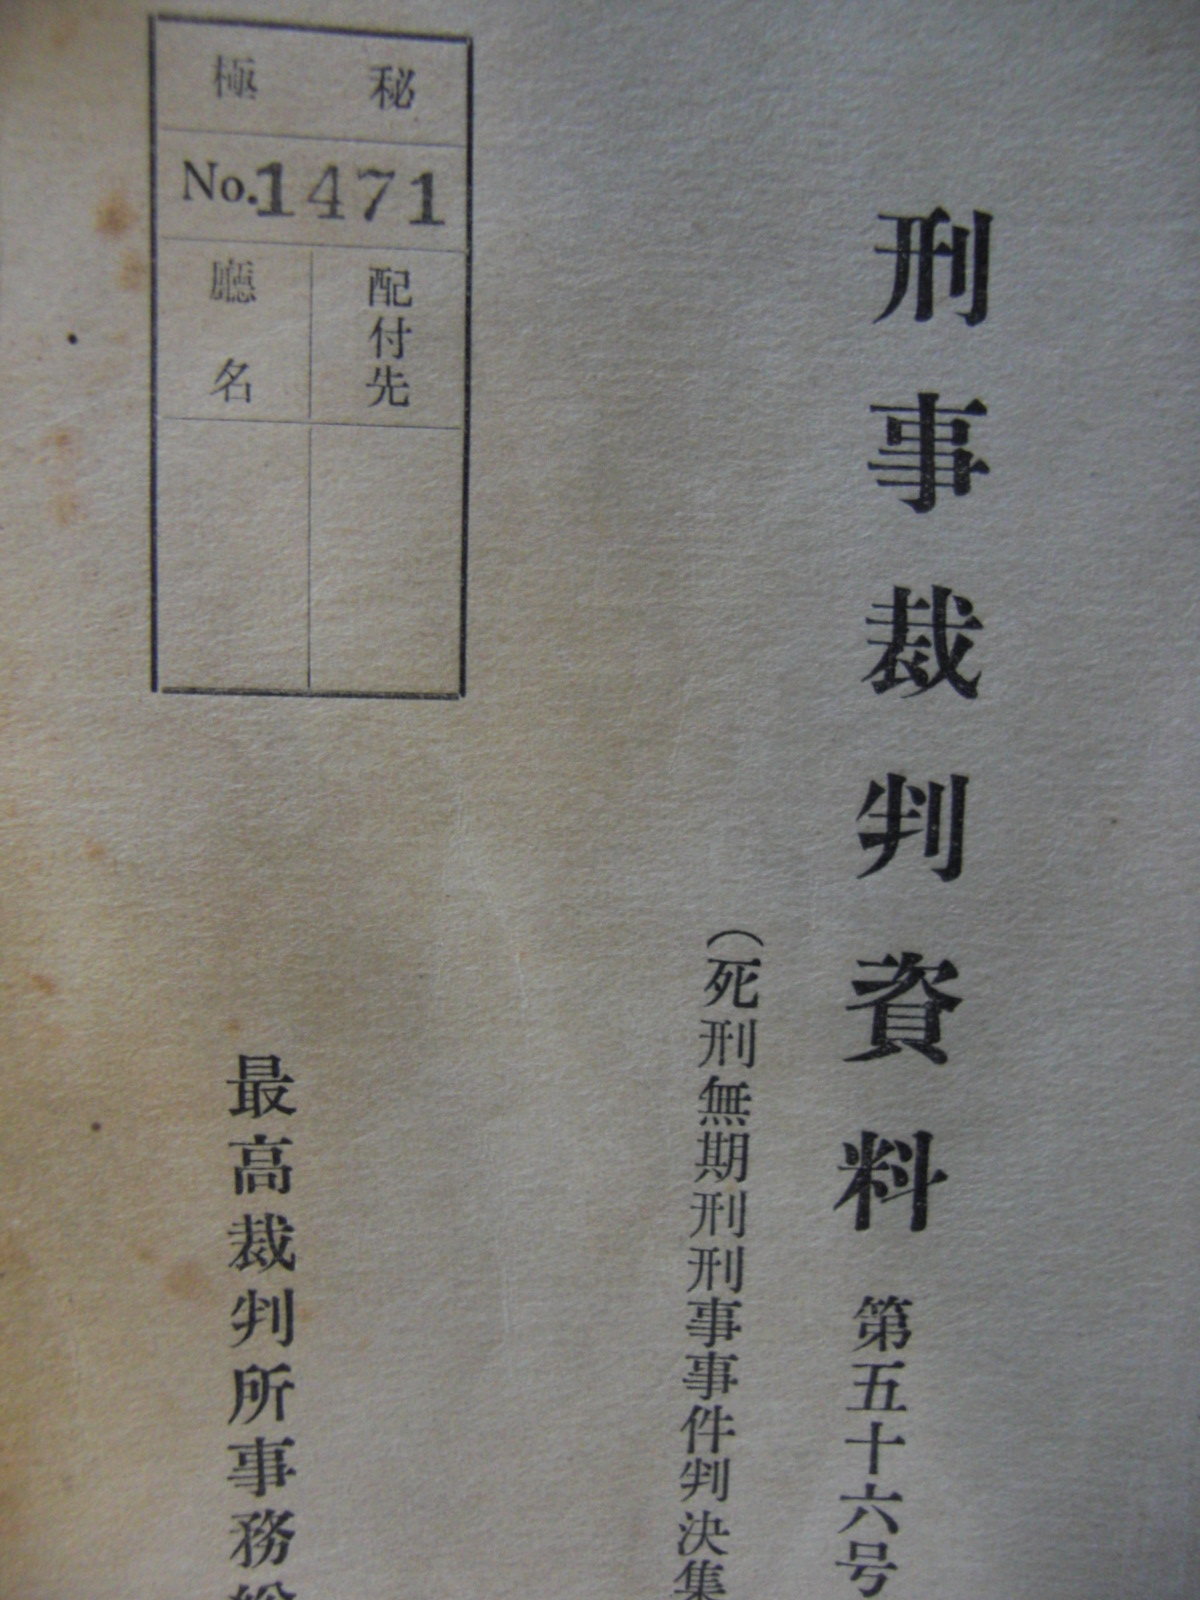 刑事裁判資料 第五十六号
（死刑無期刑刑事事件判決集
極秘
No.1471
配付先
廳名
最高裁判所事務